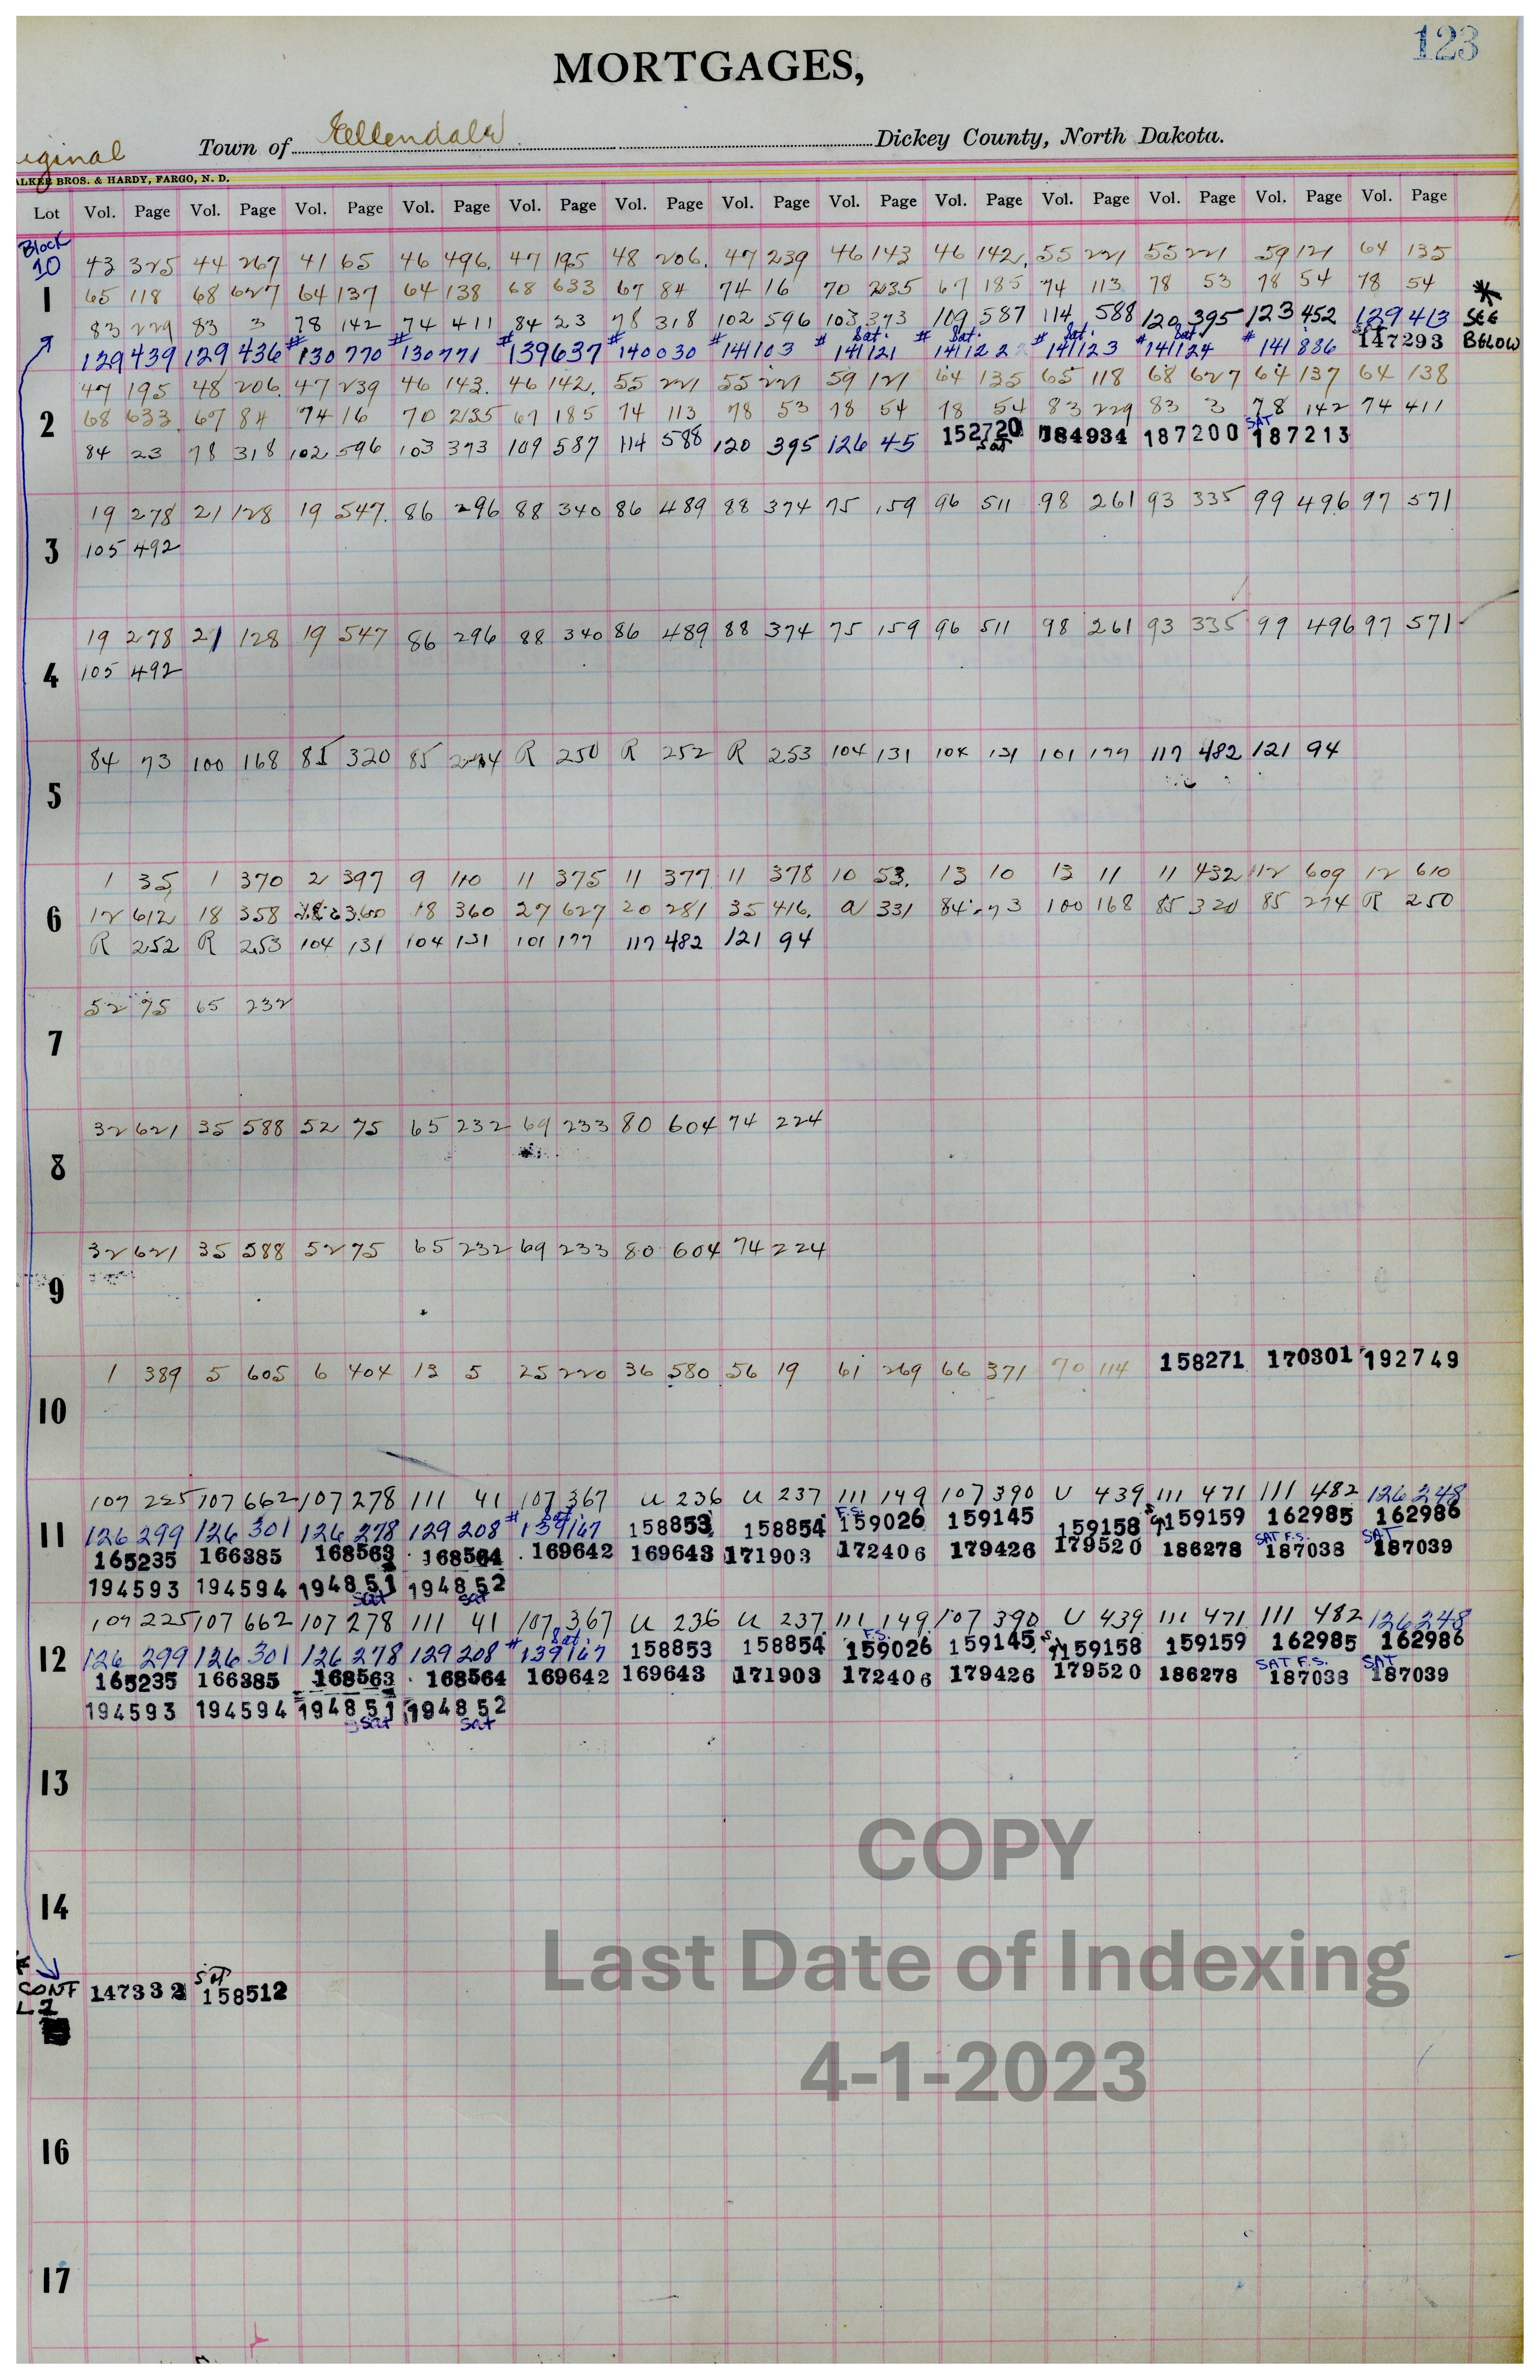 123
MORTGAGES,
Town of Ellendale Dickey County, North Dakota.
BROS. & HARDY, FARGO, N. D.
Lot Vol. Page Vol. Page Vol. Page Vol. Page Vol. Page Vol. Page Vol. Page Vol. Page Vol. Page Vol. Page Vol. Page Vol. Page Vol. Page
Block
10 43 325 44 267 41 65 46 496. 47 195 48 206. 47 239 46 143 46 142. 55 221 55 221 59 121 64 135
1 65 118 68 627 64 137 64 138 68 633 67 84 74 16 70 235 67 185 74 113 78 53 78 54 78 54 *
83 229 83 3 78 142 74 411 84 23 78 318 102 596 103 373 109 587 114 588 120 395 123 452 129 413 SEE
129 439 129 436 #130770 #130771 #139637 #140030 #141103 #141121 Sat. #141122 Sat. #141123 Sat. #141124 Sat. #141886 147293 BELOW
47 195 48 206. 47 239 46 143. 46 142. 55 221 55 221 59 121 64 135 65 118 68 627 64 137 64 138
2 68 633 67 84 74 16 70 235 67 185 74 113 78 53 78 54 78 54 83 229 83 3 78 142 74 411
84 23 78 318 102 596 103 373 109 587 114 588 120 395 126 45 152720 Sat 184934 187200 SAT 187213
19 278 21 128 19 547. 86 296 88 340 86 489 88 374 75 159 96 511 98 261 93 335 99 496 97 571
3 105 492
19 278 21 128 19 547 86 296 88 340 86 489 88 374 75 159 96 511 98 261 93 335 99 496 97 571
4 105 492
84 73 100 168 85 320 85 R 250 R 252 R 253 104 131 104 131 101 177 117 482 121 94
5
1 35 1 370 2 397 9 110 11 375 11 377 11 378 10 53. 13 10 13 11 11 432 12 609 12 610
6 12 612 18 358 18 360 27 627 20 281 35 416. a 331 84 73 100 168 85 320 85 274 R 250
R 252 R 253 104 131 104 131 101 177 117 482 121 94
52 75 65 232
7
32 621 35 588 52 75 65 232 69 233 80 604 74 224
8
32 621 35 588 52 75 65 232 69 233 80 604 74 224
9
1 389 5 605 6 404 13 5 25 220 36 580 56 19 61 269 66 371 70 114 158271 170301 192749
10
107 225 107 662 107 278 111 41 107 367 U 236 U 237 111 149 107 390 U 439 111 471 111 482 126 248
11 126 299 126 301 126 278 129 208 #139167 Sat. 158853 158854 F.S. 159026 159145 159158 159159 162985 162986
165235 166385 168563 168564 169642 169643 171903 172406 179426 179520 186278 SAT F.S. 187038 SAT 187039
194593 194594 194851 Sat 194852 Sat
107 225 107 662 107 278 111 41 107 367 U 236 U 237 111 149 107 390 U 439 111 471 111 482 126 248
12 126 299 126 301 126 278 129 208 #139167 Sat. 158853 158854 F.S. 159026 159145 159158 159159 162985 162986
165235 166385 168563 168564 169642 169643 171903 172406 179426 179520 186278 SAT F.S. 187038 SAT 187039
194593 194594 194851 Sat 194852 Sat
13
COPY
14
Last Date of Indexing
CONT 147332 Sat 158512
L 1
4-1-2023
16
17